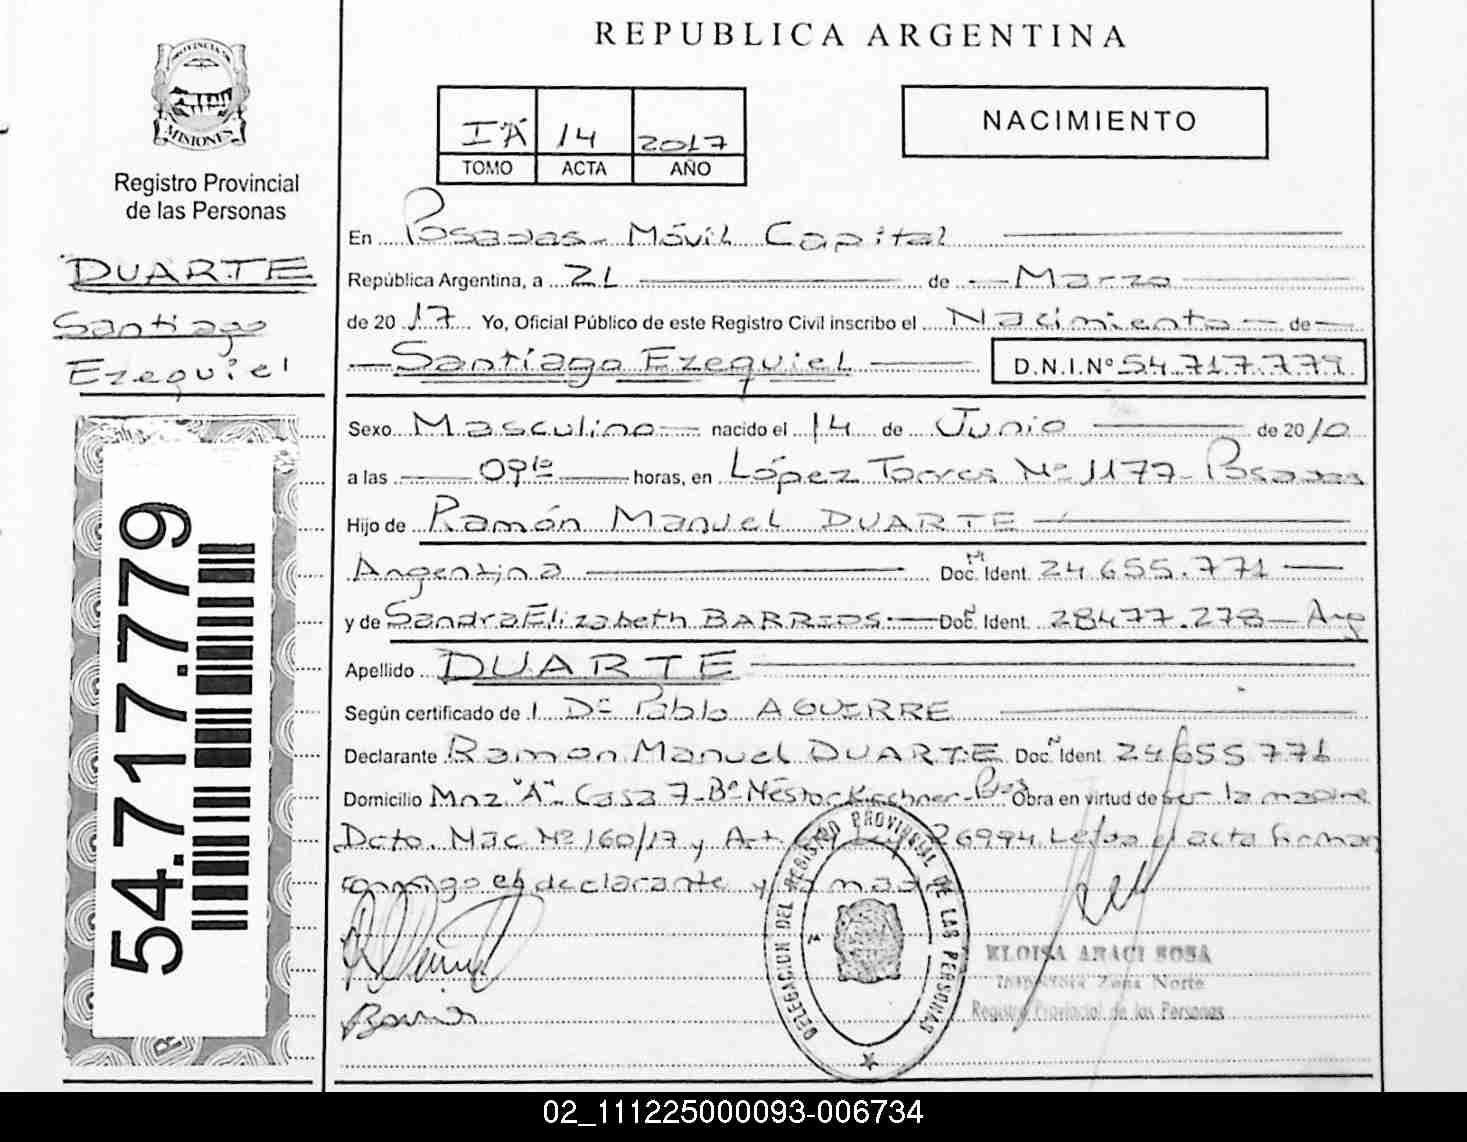 REPUBLICA ARGENTINA
PROVINCIA
MISIONES
Registro Provincial
de las Personas
DUARTE
Santiago
Ezequiel
54.717.779
IA 14 2017
TOMO ACTA AÑO
NACIMIENTO
En Posadas - Móvil Capital
República Argentina, a 21 de Marzo
de 2017 Yo, Oficial Público de este Registro Civil inscribo el Nacimiento de
Santiago Ezequiel D.N.I.Nº 54.717.779
Sexo Masculino nacido el 14 de Junio de 2010
a las 09 horas, en López Torres Nº 1177 - Posadas
Hijo de Ramón Manuel DUARTE
Argentina Doc. Ident. 24 655.771
y de Sandra Elizabeth BARRIOS Doc. Ident. 28477.278 - Arg
Apellido DUARTE
Según certificado de Pablo AGUERRE
Declarante Ramon Manuel DUARTE Doc. Ident. 24655771
Domicilio Mnz "A" - Casa 7 - Bº Néstor Kirchner - Pos Obra en virtud de ser la madre
Dcto. Nac Nº 160/17 y Art. 26994. Leída el acta firman
conmigo el declarante y la madre
DELEGACION DEL REGISTRO PROVINCIAL DE LAS PERSONAS
ELOISA ARACI SOSA
Inspectora Zona Norte
Registro Provincial de las Personas
02_111225000093-006734